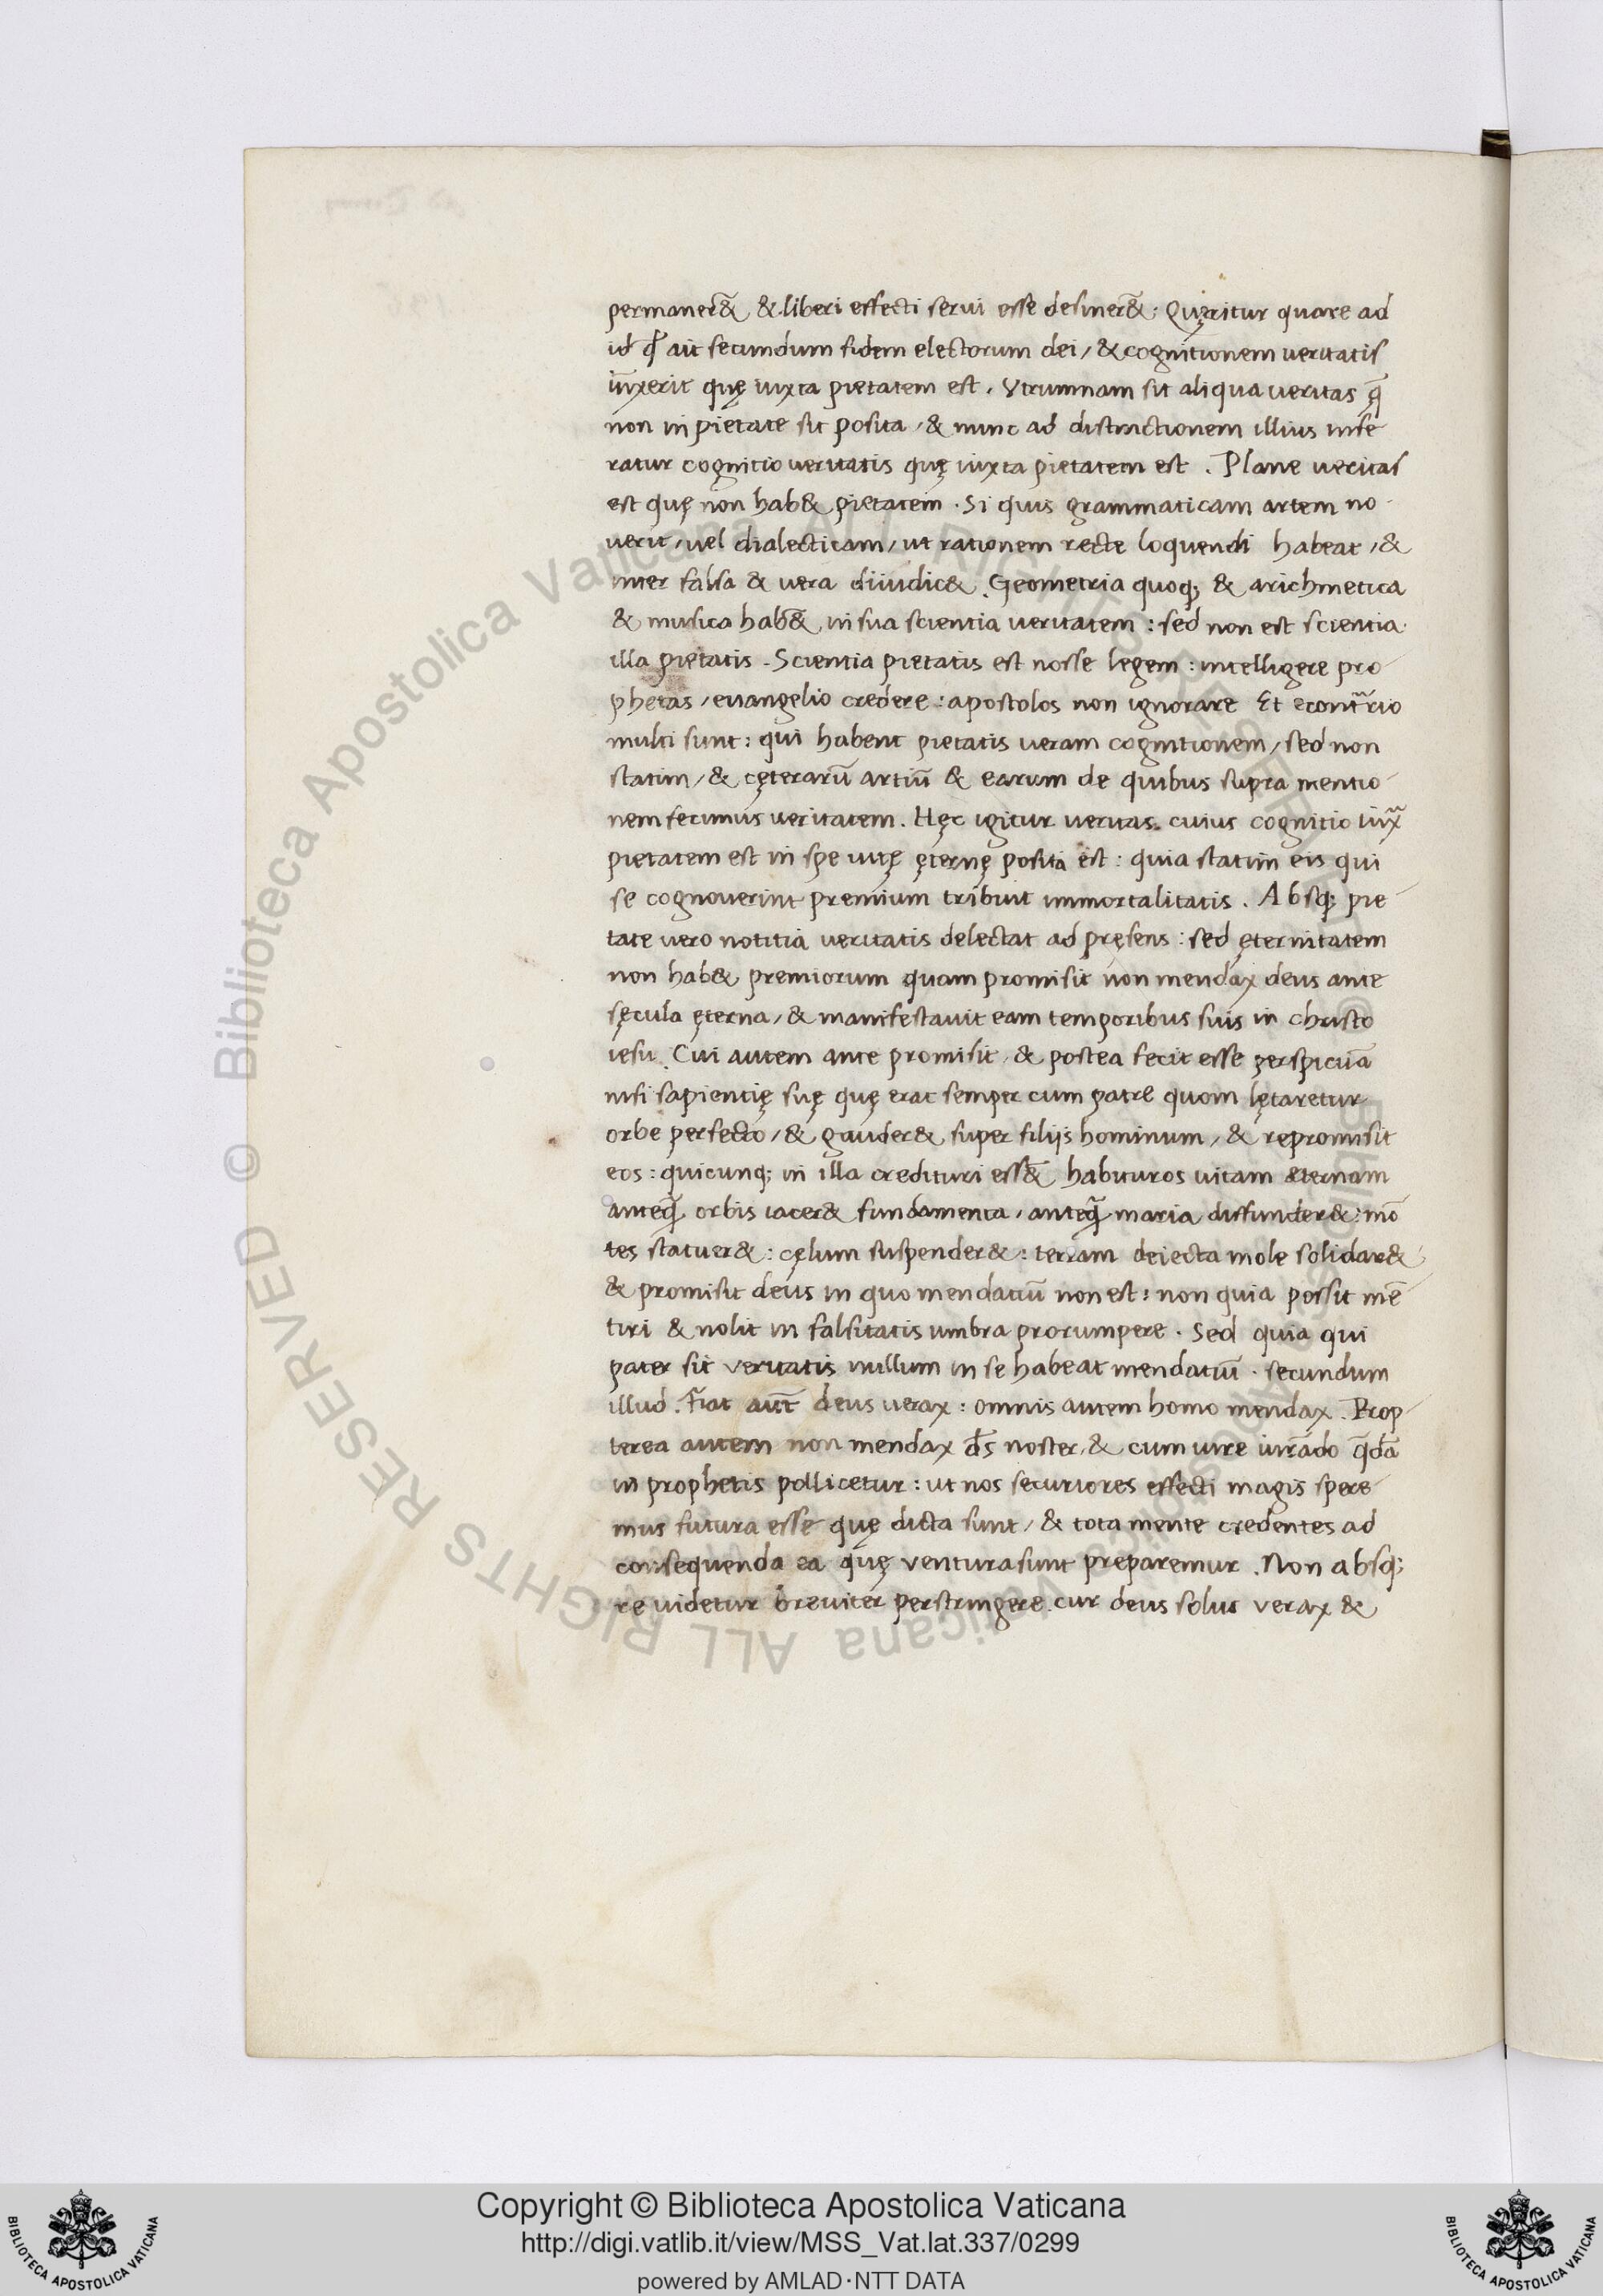 permaner&̃ & liberi effecti servi esse desiner&̃: Quęritur quare ad
id qđ ait secundum fidem electorum dei, & cognitionem veritatis
iũxerit quę iuxta pietatem est. Vtrumnam sit aliqua veritas q̃
non in pietate sit posita, & nunc ad distinctionem illius infe
ratur cognitio veritatis quę iuxta pietatem est. Plane veritas
est quę non hab& pietatem. Si quis grammaticam artem no-
verit, vel dialecticam, ut rationem recte loquendi habeat, &
inter falsa & vera diiudic&. Geometria quoq; & arichmetica
& musica hab&̃ in sua scientia veritatem: sed non est scientia
illa pietatis. Scientia pietatis est nosse legem: intelligere pro-
phetas, evangelio credere: apostolos non ignorare Et econtr̃rio
multi sunt: qui habent pietatis veram cognitionem, sed non
statim, & cęterarũ artiũ & earum de quibus supra mentio-
nem fecimus veritatem. Hęc igitur veritas. cuius cognitio iux̃
pietatem est in spe vitę ęternę posita est: quia statim eis qui
se cognoverint premium tribuit immortalitatis. Absq; pie-
tate vero notitia veritatis delectat ad pręsens: sed ęternitatem
non hab& premiorum quam promisit non mendax deus ante
sęcula ęterna, & manifestavit eam temporibus suis in christo
iesu. Cui autem ante promisit, & postea fecit esse perspicuã
nisi sapientię suę quę erat semper cum patre quom lętaretur
orbe perfecto, & gauder& super filijs hominum, & repromisit
eos: quicunq; in illa credituri ess&̃ habituros vitam æternam
anteq̃ orbis iacer& fundamenta, anteq̃ maria diffunder&: mõ
tes statuer&: cęlum suspender&: terram deiecta mole solidar&
& promisit deus in quo mendatiũ non est: non quia possit mẽ
tiri & nolit in falsitatis umbra prorumpere. Sed quia qui
pater sit veritatis nullum in se habeat mendatiũ. secundum
illud. Fiat aut̃ deus verax: omnis autem homo mendax. Prop-
terea autem non mendax d̃s noster, & cum iure iurãdo q̃dã
in prophetis pollicetur: ut nos securiores effecti magis spere-
mus futura esse quę dicta sunt, & tota mente credentes ad
consequenda ea quę ventura sunt preparemur. Non absq;
re videtur breviter perstringere. cur deus solus verax &
Copyright © Biblioteca Apostolica Vaticana
http://digi.vatlib.it/view/MSS_Vat.lat.337/0299
powered by AMLAD·NTT DATA
BIBLIOTECA APOSTOLICA VATICANA
BIBLIOTECA APOSTOLICA VATICANA
© Biblioteca Apostolica Vaticana ALL RIGHTS RESERVED
© Biblioteca Apostolica Vaticana ALL RIGHTS RESERVED